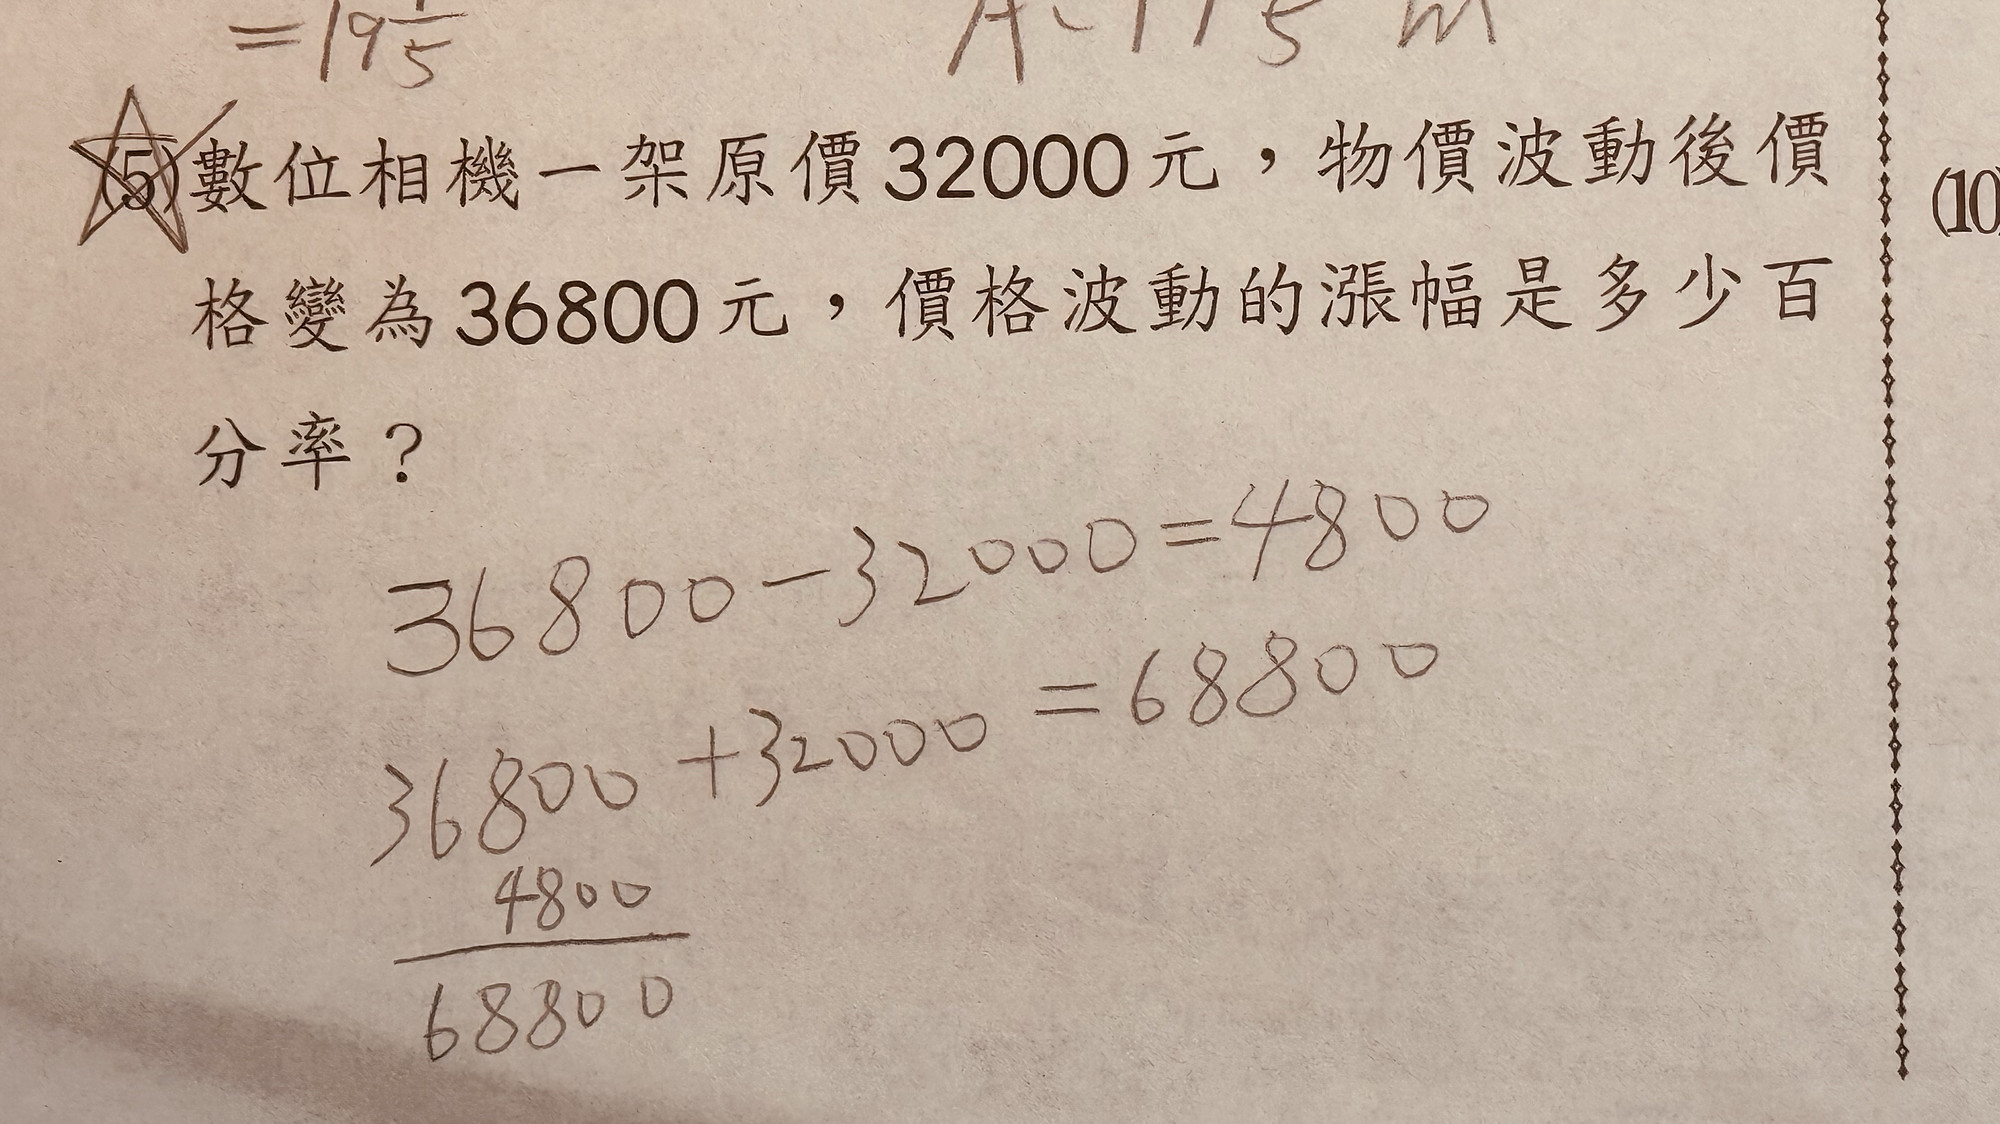 =19 1/5
(5)數位相機一架原價32000元，物價波動後價
格變為36800元，價格波動的漲幅是多少百
分率？
36800-32000=4800
36800+32000=68800
4800
68800
(10)